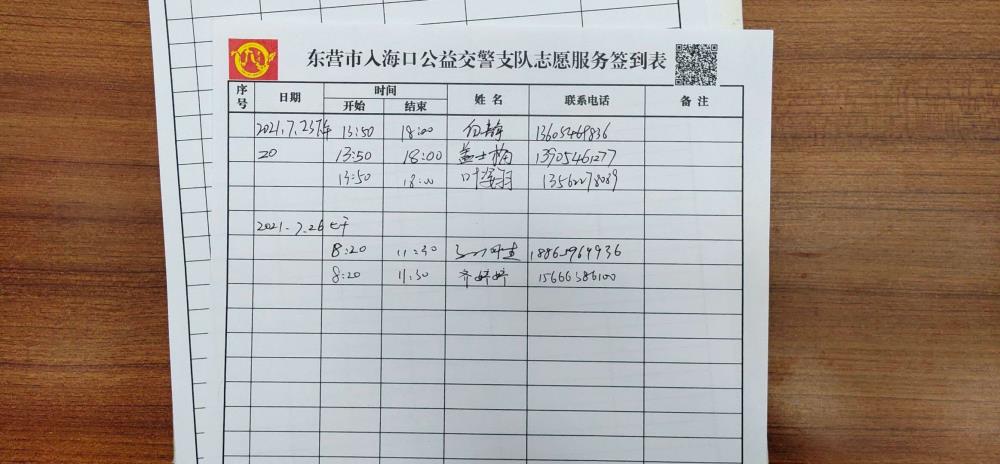 东营市入海口公益交警支队志愿服务签到表
序号 日期 时间 开始 结束 姓名 联系电话 备注
2021.7.23下午 13:50 18:00 白静
20 13:50 18:00 13905461277
13:50 18:00
2021.7.26上午
8:20 11:30
8:20 11:30 齐婷婷 15666586100